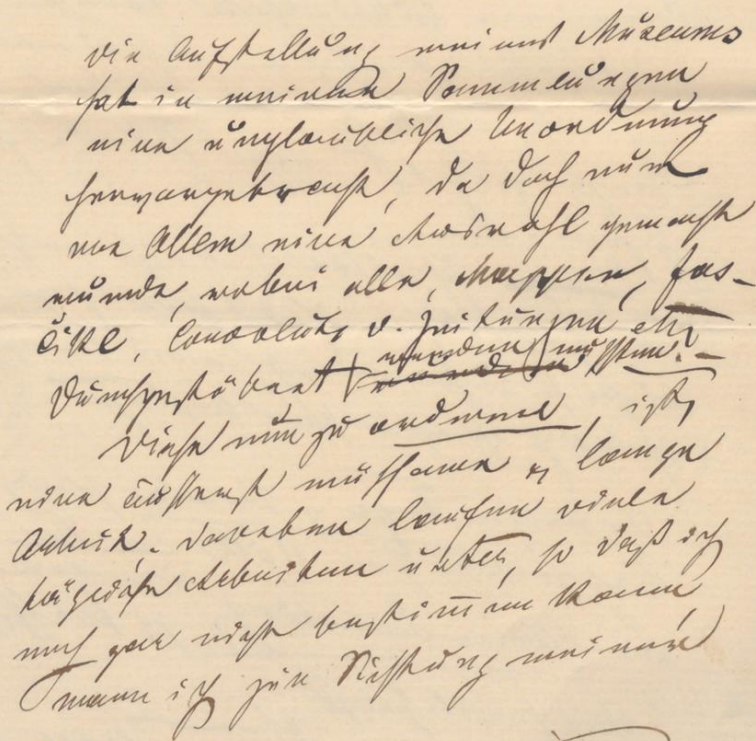 Die Aufstellung meines Museums
hat in meinen Sammlungen
eine unglaubliche Unordnung
hervorgebracht, da doch nun
vor Allem eine Auswahl gemacht
wurde, wobei alle Mappen, Fas-
cikel, Convolute v. Zeitungen etc
durchgestöbert werden mussten. –
Diese nun zu ordnen, ist
eine äusserst mühsame u. lange
Arbeit. Daneben laufen viele
tägliche Arbeiten unter, so daß ich
noch gar nicht bestimmen kann
wann ich zur Sichtung meiner